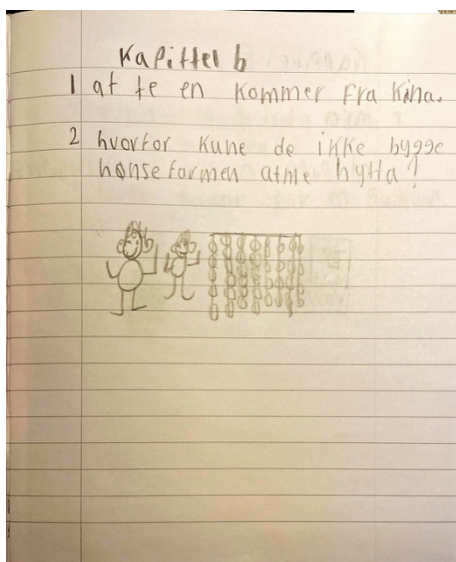 Kapittel 6
1 at te en kommer fra Kina.
2 hvorfor kune de ikke bygge
hønse farmen hytta?